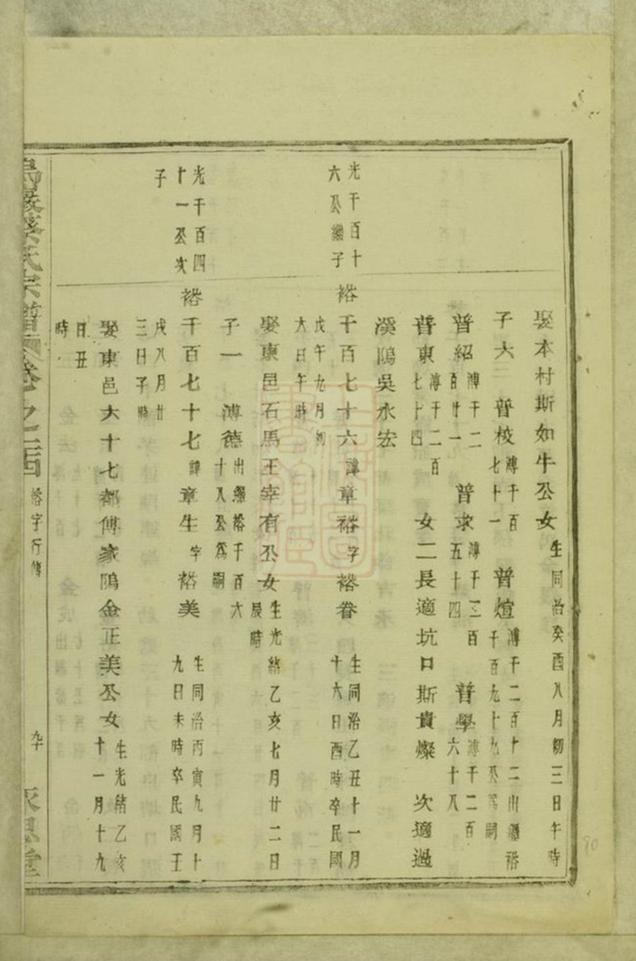 娶本村斯如牛公女生同治癸酉八月初三日午時
子六 普校溥千百七十一 普煊溥千二百十二出繼裕千百九十九公為嗣
普紹溥千二百廿一 普求溥千三百五十四 普學溥千二百六十八
普東溥千二百七十四 女二長適坑口斯貴燦 次適過
溪隝吳永宏
光千百十六公繼子
裕千百七十六諱章裕字裕眷生同治乙丑十一月十六日酉時卒民國
戊午九月初六日午時
娶東邑石馬王宰有公女生光緒乙亥七月廿二日辰時
子一 溥德出繼裕千百六十八公為嗣
光千百四十一公次子
裕千百七十七諱章生字裕美生同治丙寅九月十九日未時卒民國壬
戌八月廿三日子時
娶東邑大十七都傅家隝金正美公女生光緒乙亥十一月十九
日丑時
氏宗譜卷之十四 裕字行傳 九十